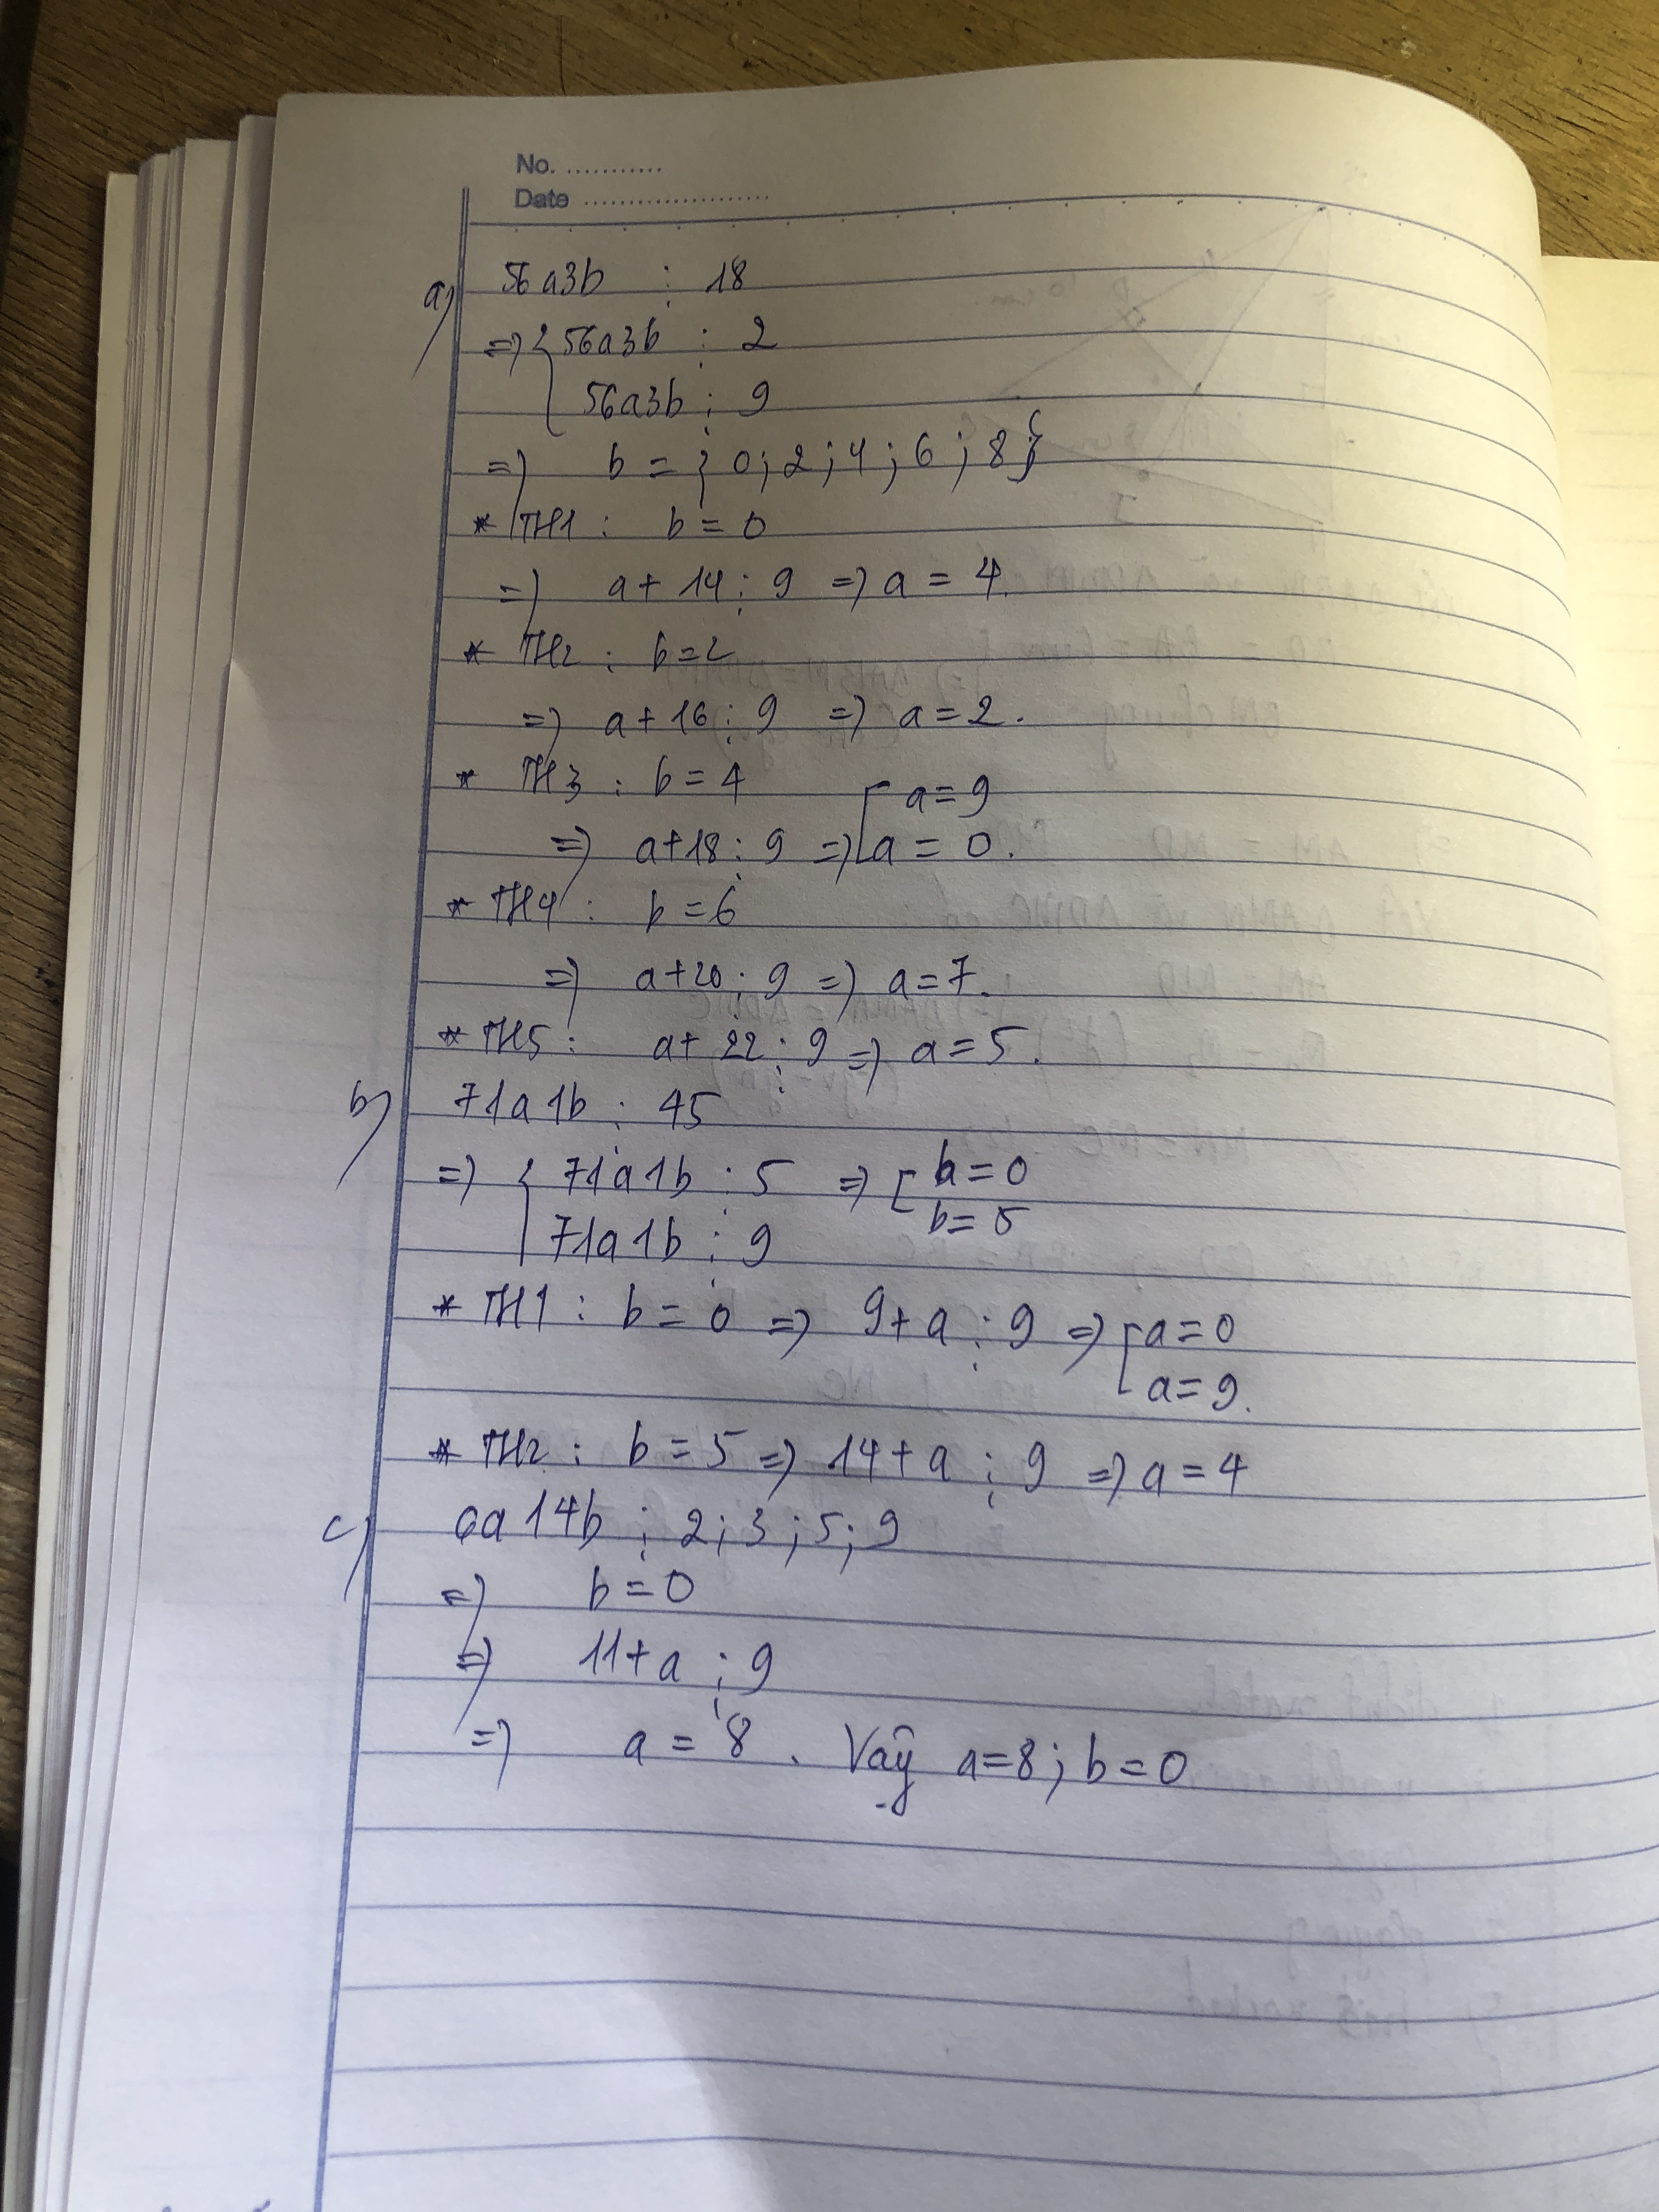 No. ...........
Date ......................
a) 56a3b ⋮ 18
=> { 56a3b ⋮ 2
56a3b ⋮ 9
=> b = { 0; 2; 4; 6; 8 }
* TH1 : b = 0
=> a + 14 ⋮ 9 => a = 4.
* TH2 : b = 2
=> a + 16 ⋮ 9 => a = 2.
* TH3 : b = 4 [ a = 9
=> a + 18 ⋮ 9 => [ a = 0.
* TH4 : b = 6
=> a + 20 ⋮ 9 => a = 7.
* TH5 : a + 22 ⋮ 9 => a = 5.
b) 71a1b ⋮ 45
=> { 71a1b ⋮ 5 => [ b = 0
b = 5
71a1b ⋮ 9
* TH1 : b = 0 => 9 + a ⋮ 9 => [ a = 0
a = 9.
* TH2 : b = 5 => 14 + a ⋮ 9 => a = 4
c) 6a14b ⋮ 2; 3; 5; 9
=> b = 0
=> 11 + a ⋮ 9
=> a = 8. Vậy a = 8; b = 0